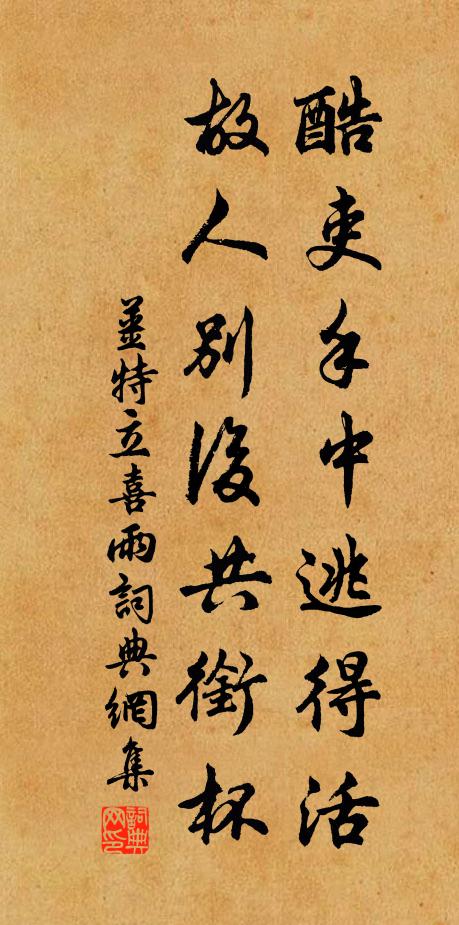 酷吏手中逃得活
故人別後共銜杯
姜特立喜雨詞典網集
詞典網印